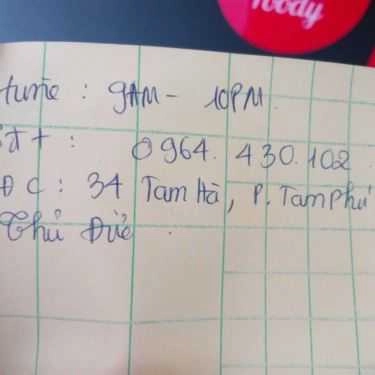 foody
time : 9AM - 10PM.
ĐT : 0964. 430.102.
ĐC : 34 Tam Hà, P. Tam Phú
Thủ Đức.